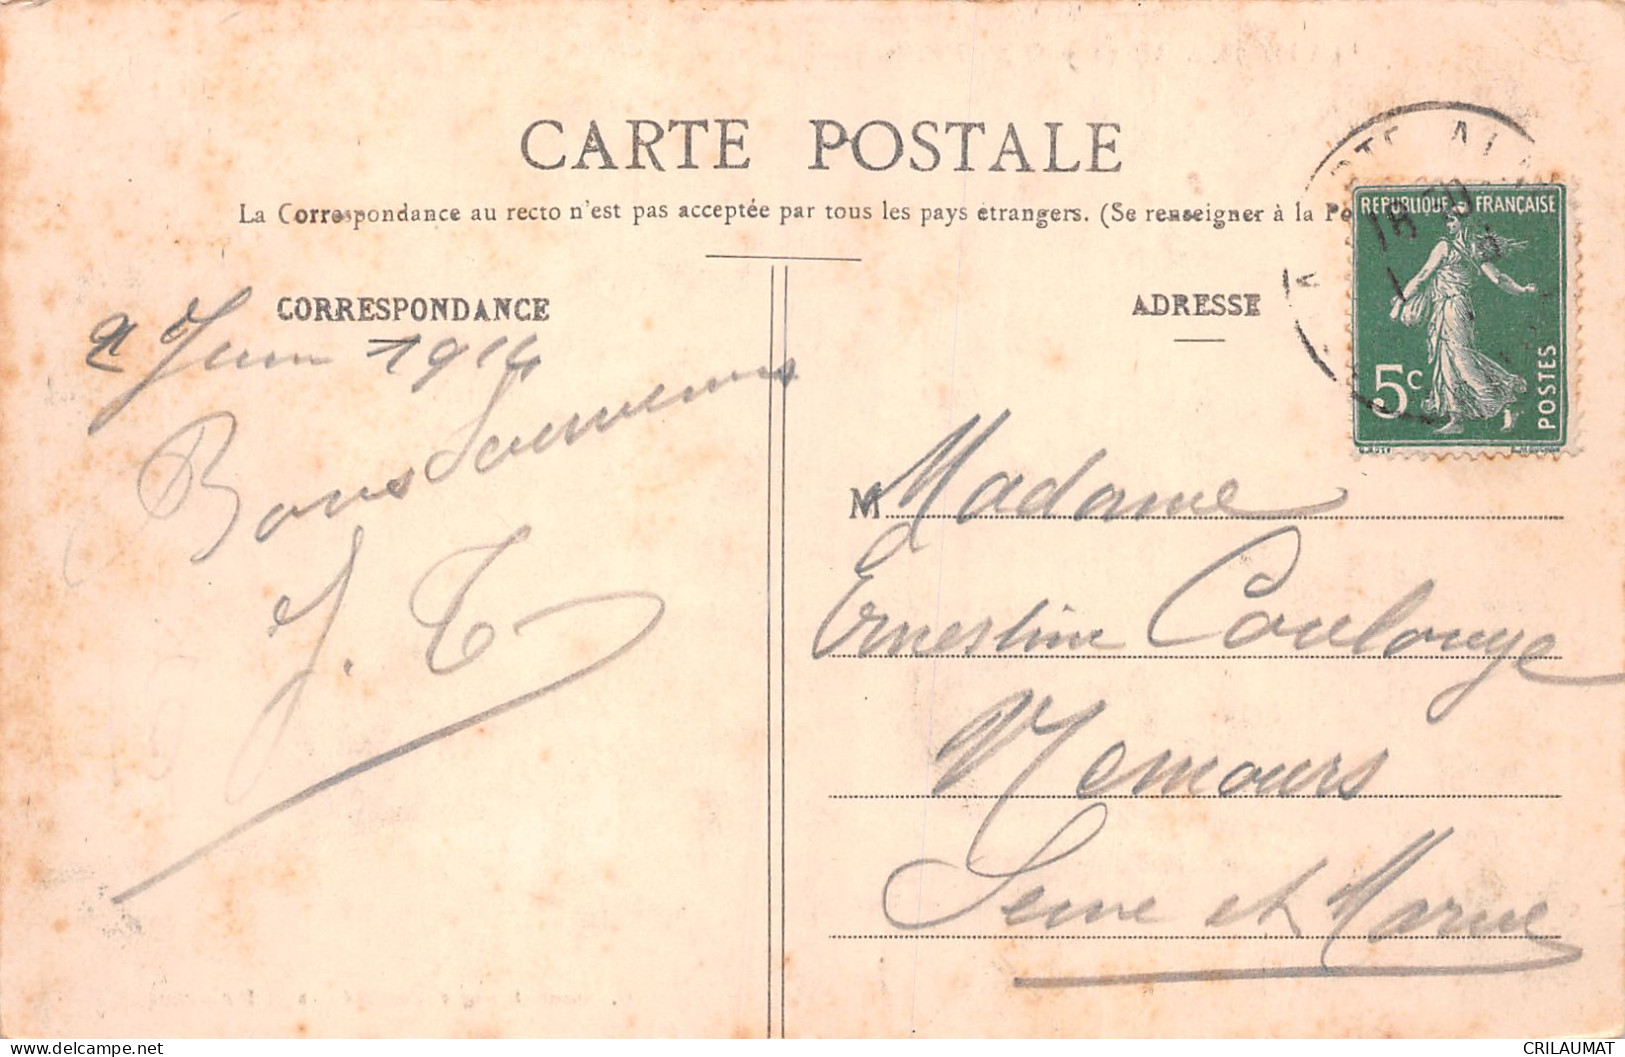 CARTE POSTALE
La Correspondance au recto n'est pas acceptée par tous les pays étrangers. (Se renseigner à la
CORRESPONDANCE
2 Juin 1914
Bons Souvenirs
J. T
ADRESSE
REPUBLIQUE FRANÇAISE
5c
POSTES
M Madame
Ernestine Coulouge
Nemours
Seine et Marne
CRILAUMAT